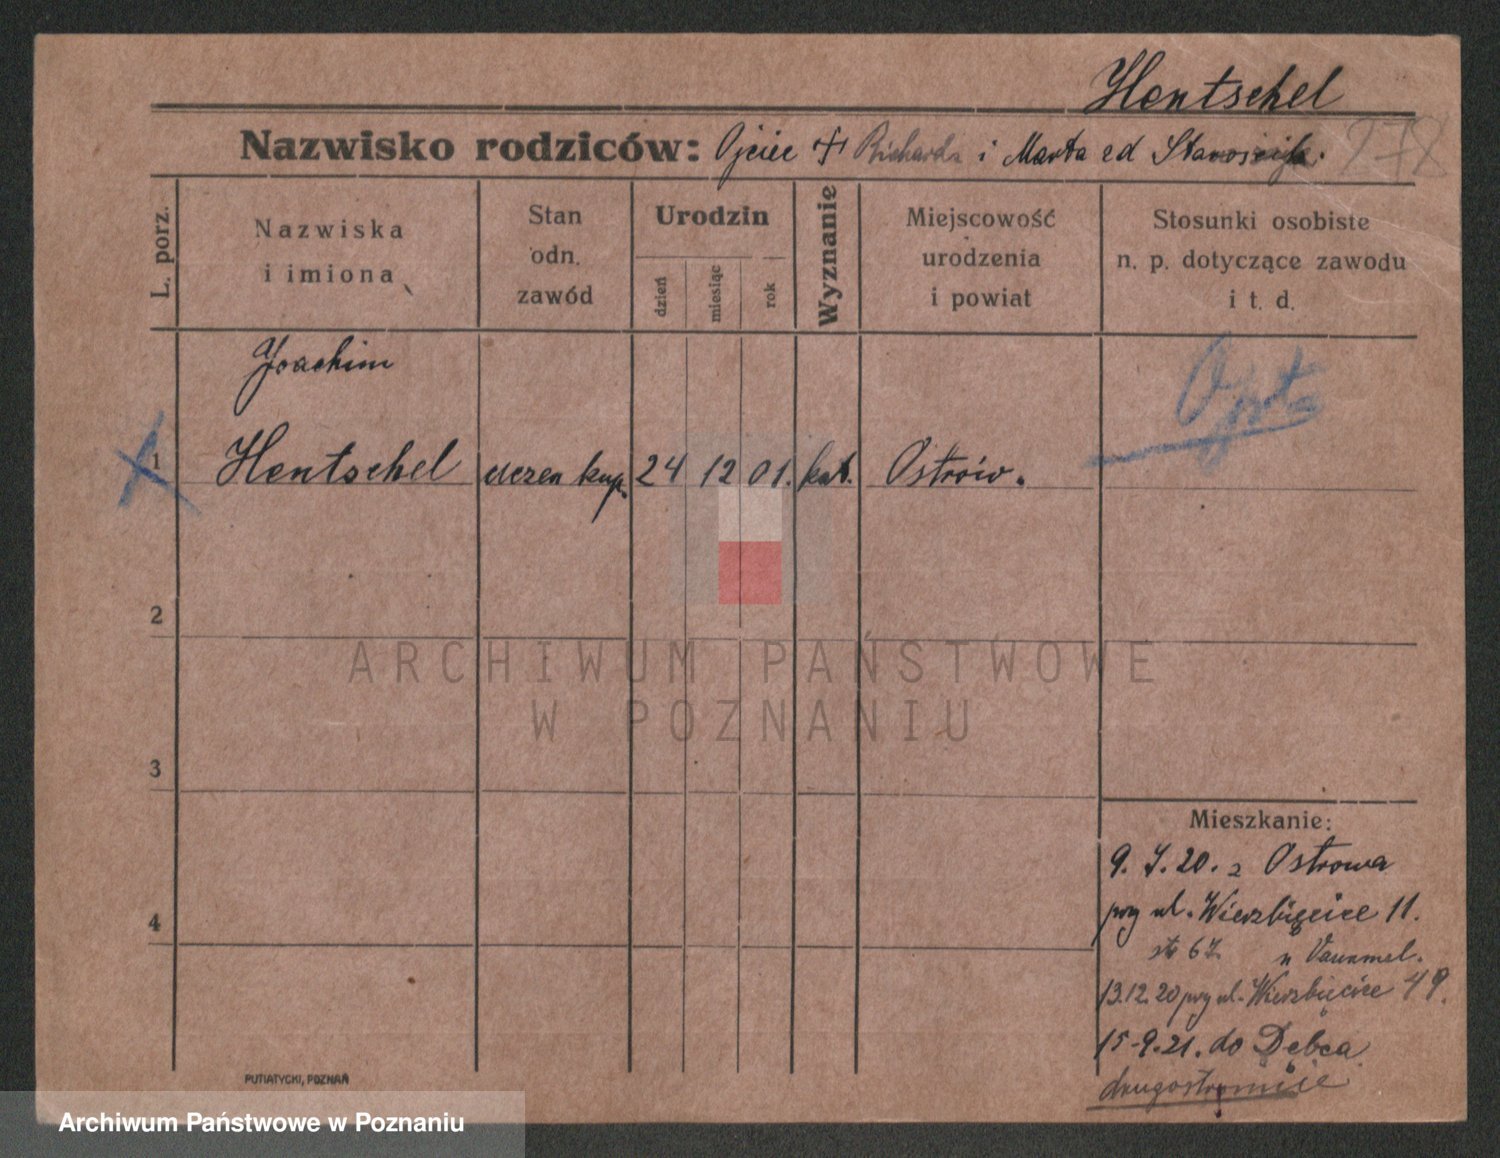 Hentschel
Nazwisko rodziców: Ojciec + Richard i Marta zd
L. porz.
Nazwiska
i imiona
Stan
odn.
zawód
Urodzin
dzień
miesiąc
rok
Wyznanie
Miejscowość
urodzenia
i powiat
Stosunki osobiste
n. p. dotyczące zawodu
i t. d.
Joachim
1 Hentschel uczen kup. 24 12 01. kat. Ostrów.
2
3
4
Mieszkanie:
9. 7. 20. z Ostrowa
przy ul. Wierzbięcice 11.
13.12.20 przy ul. Wierzbięcice 49.
15-9.21. do Dębca
drugostronnie
PUTIATYCKI, POZNAŃ
ARCHIWUM PAŃSTWOWE
W POZNANIU
Archiwum Państwowe w Poznaniu